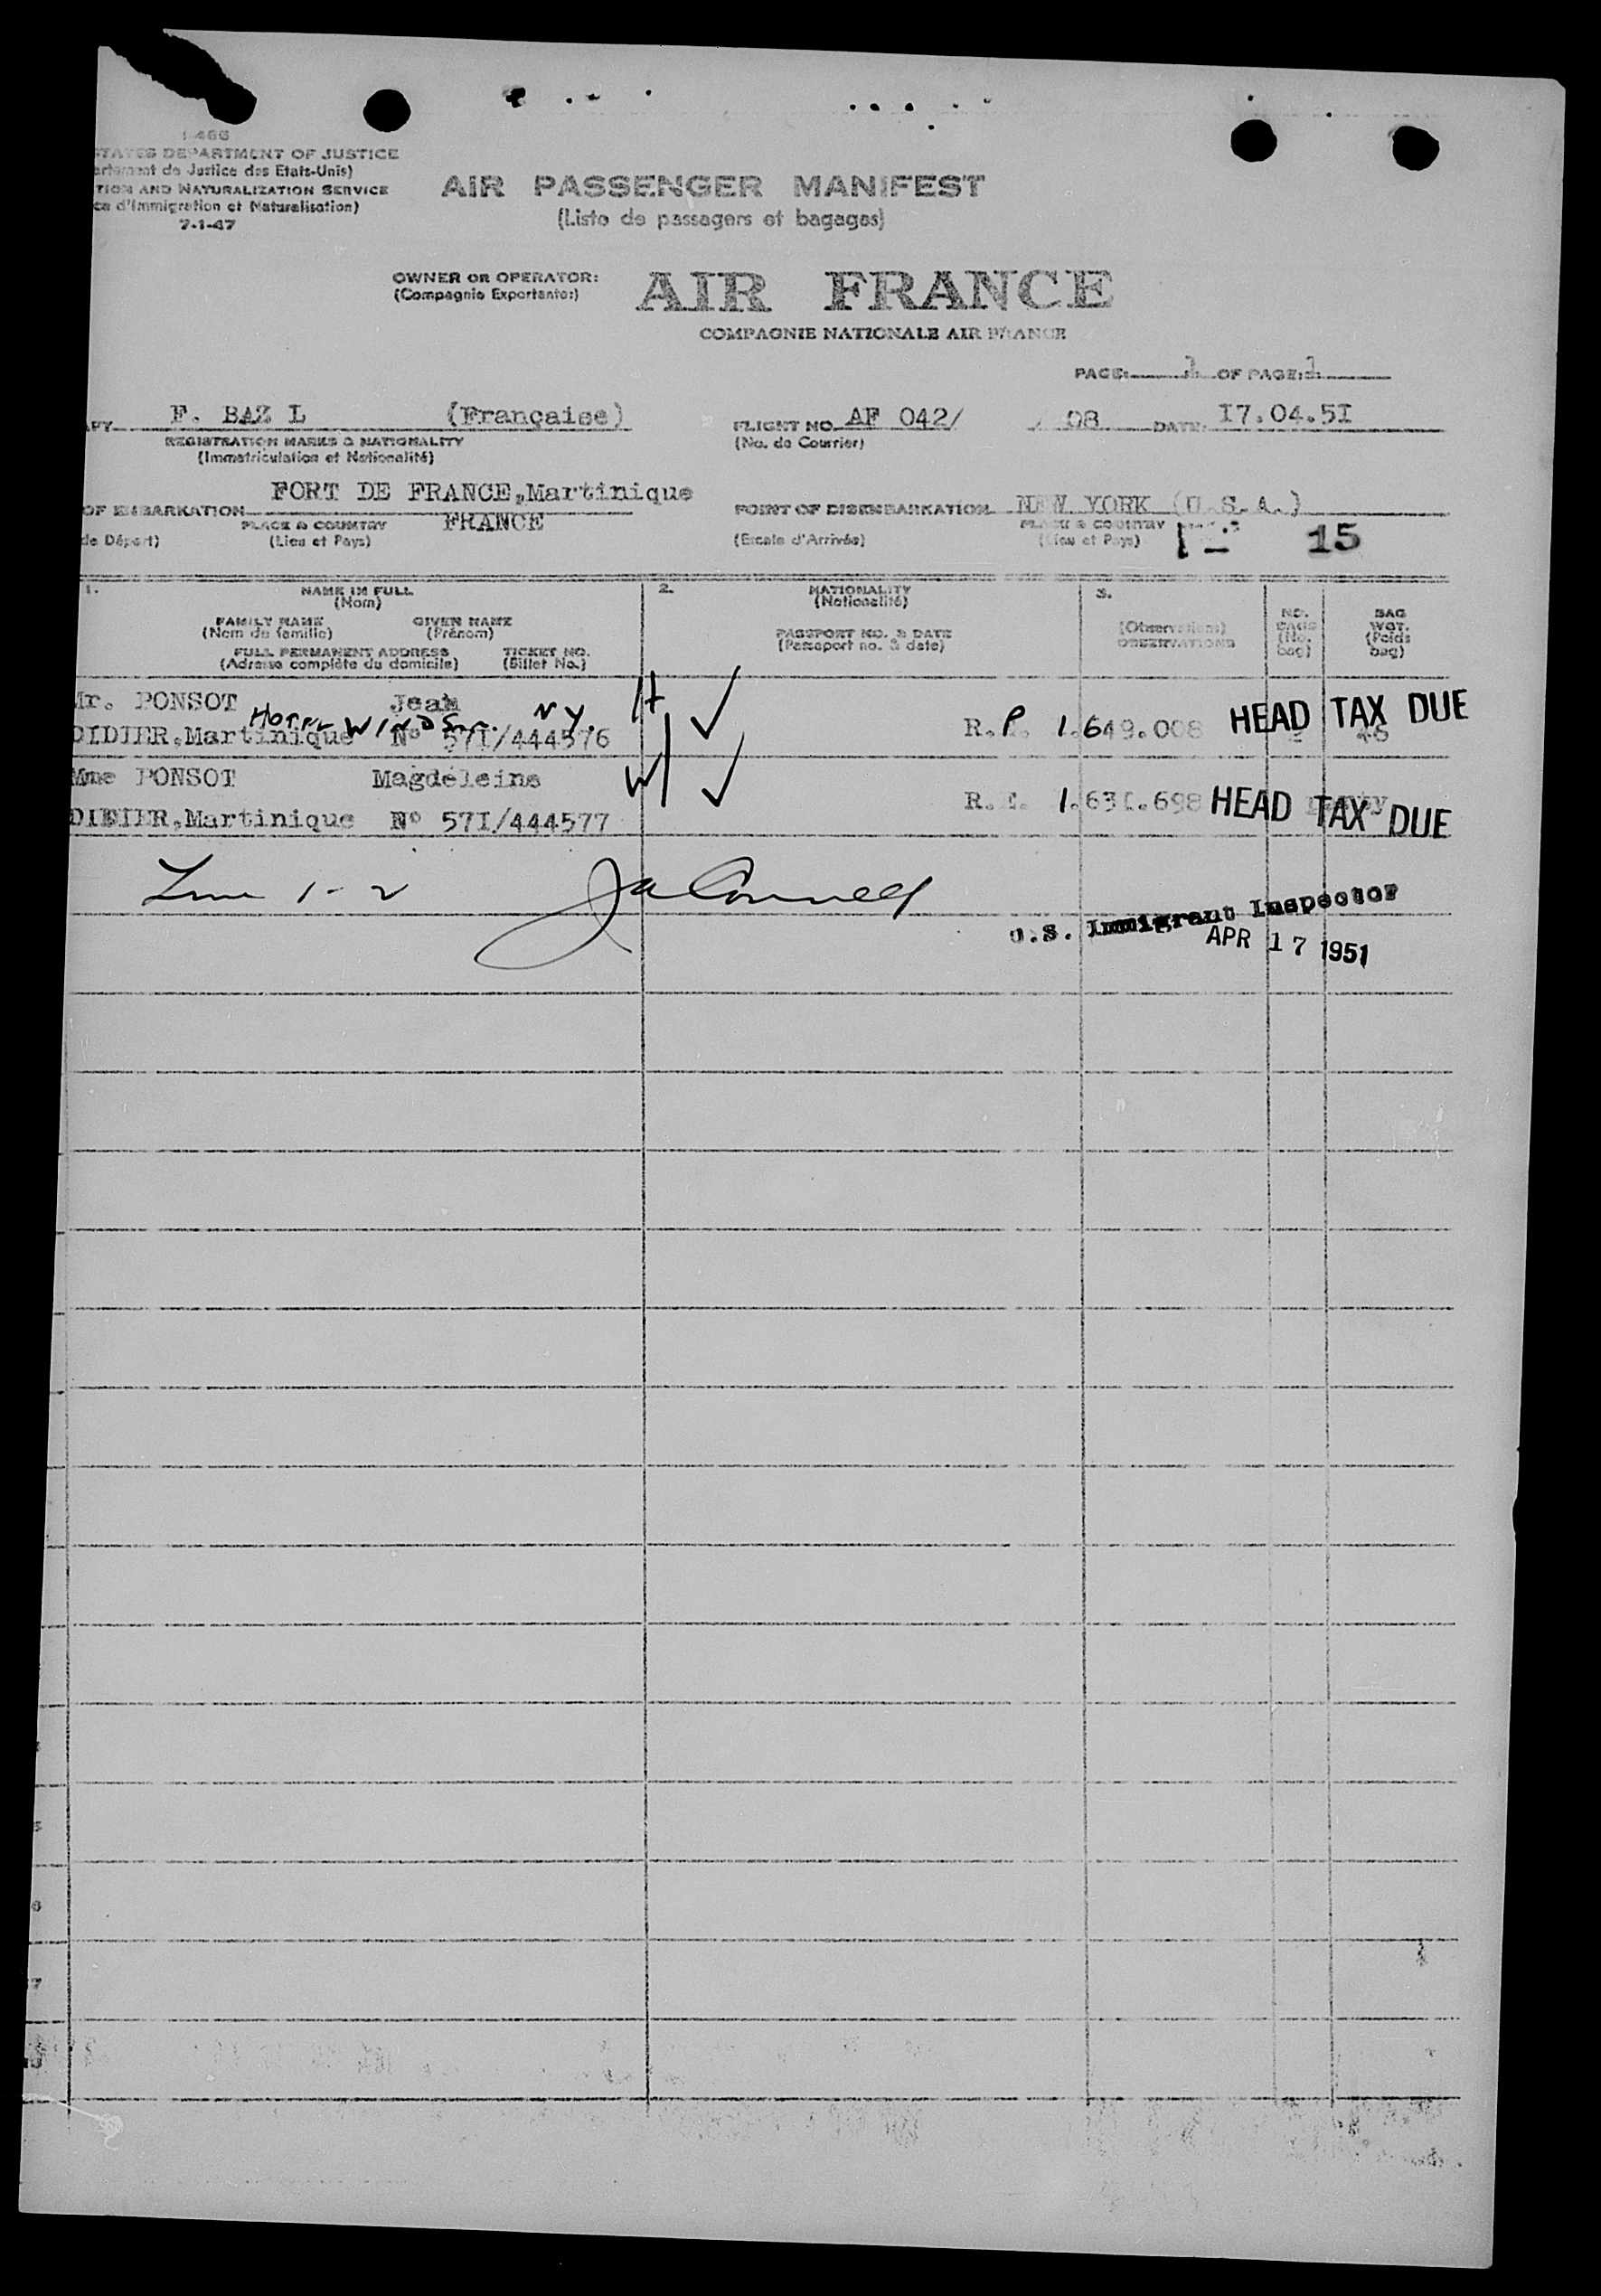 I-466
STATES DEPARTMENT OF JUSTICE
artement de Justice des Etats-Unis)
TION AND NATURALIZATION SERVICE
ce d'Immigration et Naturalisation)
7-1-47
AIR PASSENGER MANIFEST
(Liste de passagers et bagages)
OWNER OR OPERATOR:
(Compagnie Exportante:)
AIR FRANCE
COMPAGNIE NATIONALE AIR FRANCE
PAGE: 1 OF PAGE: 1
F. BAZ L (Française)
REGISTRATION MARKS & NATIONALITY
(Immatriculation et Nationalité)
FLIGHT NO. AF 042/ / 08 DATE: I7.04.5I
(No. de Courrier)
FORT DE FRANCE,Martinique
OF EMBARKATION FRANCE
PLACE & COUNTRY
de Départ) (Lieu et Pays)
POINT OF DISEMBARKATION NEW YORK (U.S.A.)
PLACE & COUNTRY
(Escale d'Arrivée) (Lieu et Pays) 15
1. NAME IN FULL
(Nom)
FAMILY NAME GIVEN NAME
(Nom de famille) (Prénom)
FULL PERMANENT ADDRESS TICKET NO.
(Adresse complète du domicile) (Billet No.)
2. NATIONALITY
(Nationalité)
PASSPORT NO. & DATE
(Passeport no. & date)
3.
(Observations)
OBSERVATIONS
NO. BAGS (No. bag)
BAG WGT. (Poids bag)
Mr. PONSOT Jean H
HOTEL WINDSOR N Y.
DIDIER,Martinique N° 57I/444576 R.P. 1.649.008 HEAD TAX DUE
Mme PONSOT Magdeleine W
DIDIER,Martinique N° 57I/444577 R. 1.63I.698 HEAD TAX DUE
Line 1-2
U.S. Immigrant Inspector
APR 17 1951
7